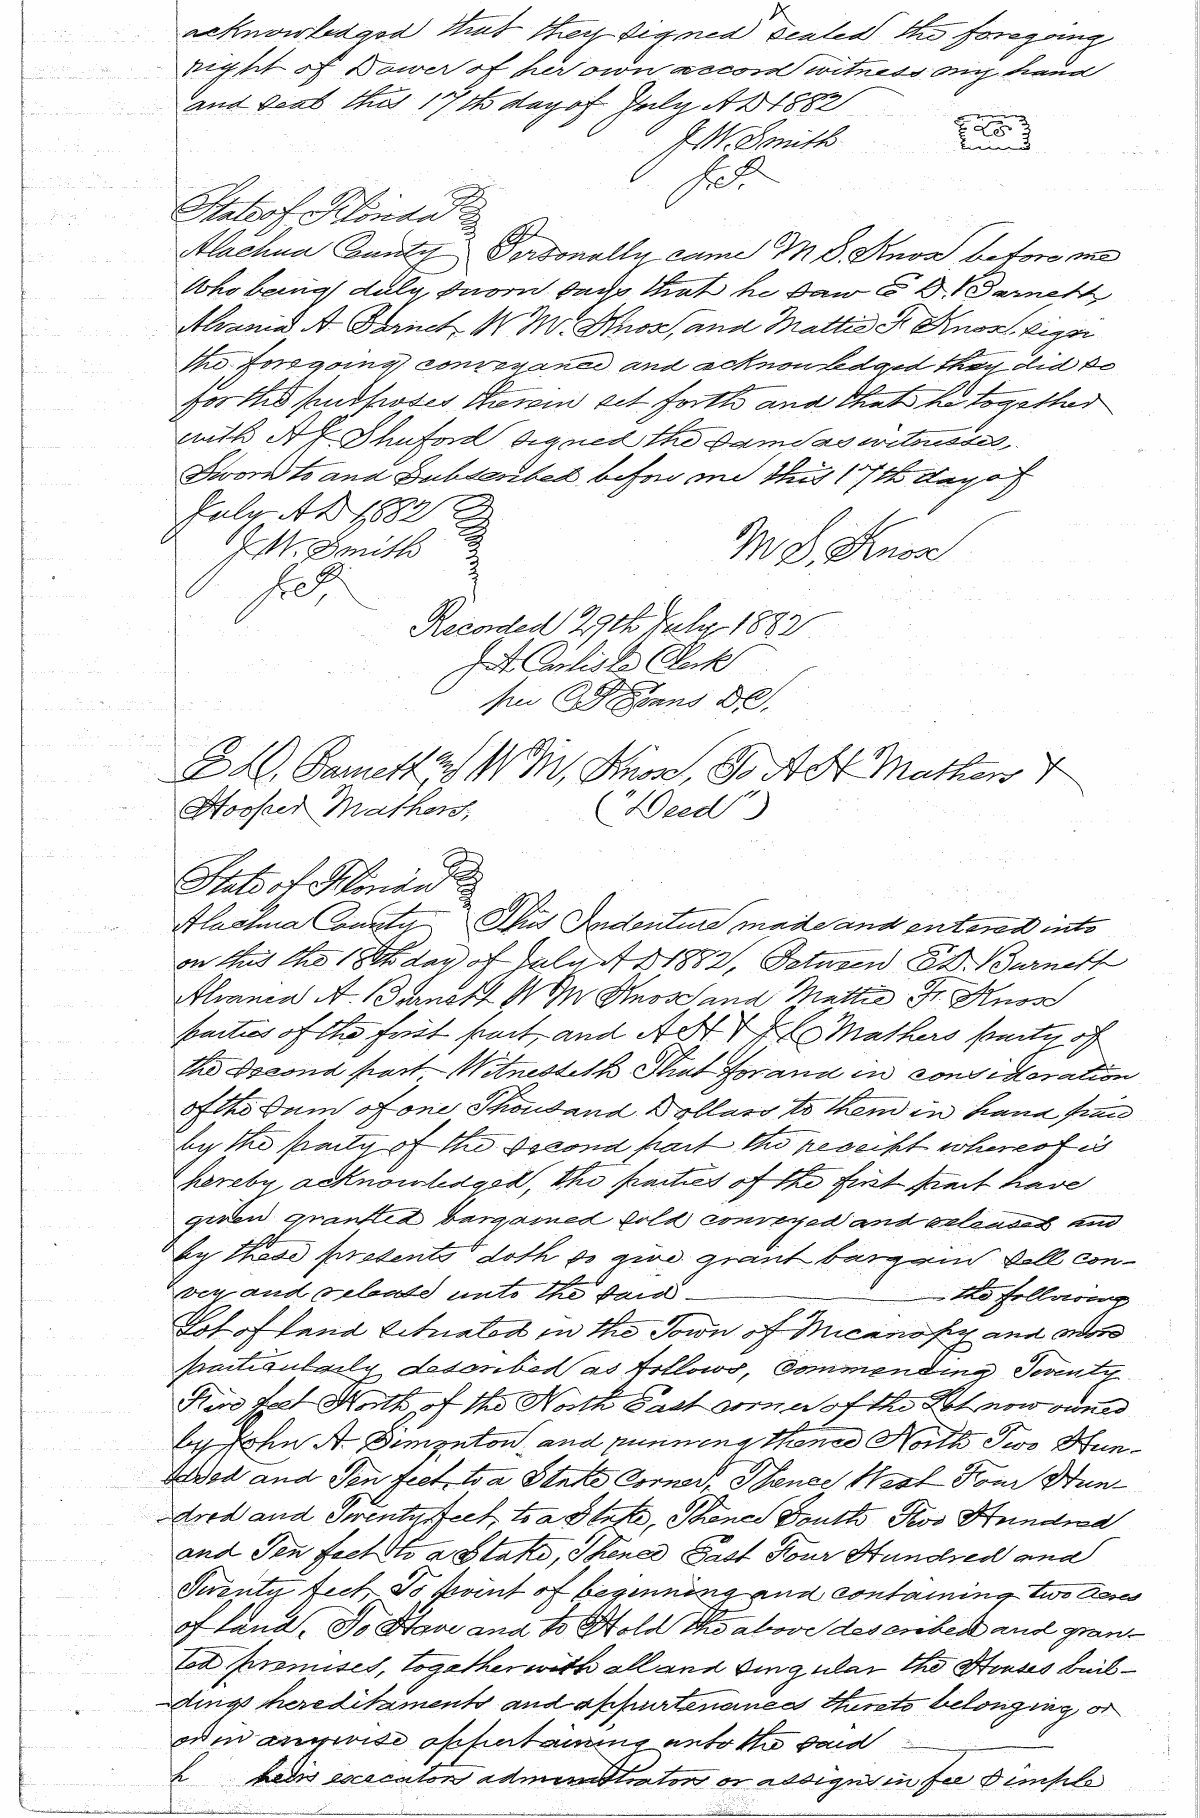 acknowledged that they signed & sealed the foregoing
right of Dower of her own accord witness my hand
and seal this 17th day of July AD 1882
J. W. Smith LS
J.P.
State of Florida
Alachua County Personally came M S. Knox before me
Who being duly sworn says that he saw E D. Barnett
Alvania A Barnet, W M. Knox, and Mattie F. Knox sign
the foregoing conveyance and acknowledged they did so
for the purposes therein set forth and that he together
with A J. Shuford signed the same as witnesses,
Sworn to and Subscribed before me this 17th day of
July AD 1882
J. W. Smith M S. Knox
J.P.
Recorded 29th July 1882
J A Carlisle Clerk
per Evans D.C.
E D. Barnett and W M, Knox, To A H Mathers &
Hooper Mathers, ("Deed")
State of Florida
Alachua County This Indenture made and entered into
on this the 18th day of July AD 1882, Between E D. Barnett
Alvania A. Barnett W M Knox and Mattie F. Knox
parties of the first part, and A H & Mathers party of
the Second part, Witnesseth That for and in consideration
of the Sum of one Thousand Dollars to them in hand paid
by the party of the second part the receipt whereof is
hereby acknowledged, the parties of the first part have
given granted bargained sold conveyed and released and
by these presents doth so give grant bargain sell con-
vey and release unto the said the following
Lot of land situated in the Town of Micanopy and more
particularly described as follows, commencing Twenty
Five feet North of the North East corner of the Lot now owned
by John A. Simonton and running thence North Two Hun-
dred and Ten feet, to a Stake Corner, Thence West Four Hun-
dred and Twenty feet, to a Stake, Thence South Two Hundred
and Ten feet to a Stake, Thence East Four Hundred and
Twenty feet, To point of beginning and containing two acres
of land. To Have and to Hold the above described and gran-
ted premises, together with all and singular the Houses buil-
dings hereditaments and appurtenances thereto belonging, or
or in anywise appertaining unto the said
h heirs executors administrators or assigns in fee Simple